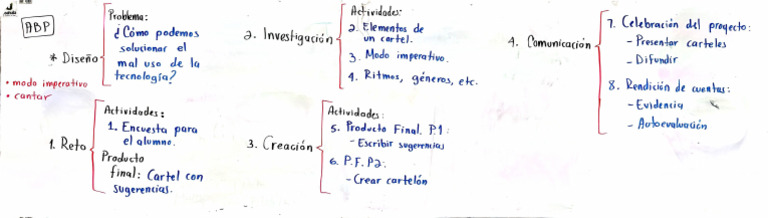 ABP
* Diseño
Problema:
¿Cómo podemos
solucionar el
mal uso de la
tecnología?
• modo imperativo
• cantar
1. Reto
Actividades:
1. Encuesta para
el alumno.
Producto
final: Cartel con
sugerencias.
2. Investigación
Actividades:
2. Elementos de
un cartel.
3. Modo imperativo.
4. Ritmos, géneros, etc.
3. Creación
Actividades:
5. Producto Final. P.1:
- Escribir sugerencias
6. P.F. P2:
- Crear cartelón
4. Comunicación
7. Celebración del proyecto:
- Presentar carteles
- Difundir
8. Rendición de cuentas:
- Evidencia
- Autoevaluación